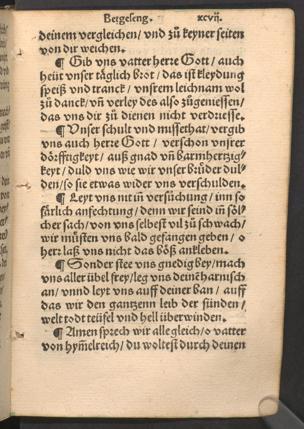 Betgeseng. xcvij.
deinem vergleichen/ vnd zů keyner seiten
von dir weichen.
¶ Gib vns vatter herre Gott/ auch
heüt vnser täglich brot/ das ist kleydung
speiß vnd tranck/ vnsrem leichnam wol
zů danck/ vñ verley des also zůgeniessen/
das vns dir zů dienen nicht verdriesse.
¶ Vnser schult vnd missethat/ vergib
vns auch herre Gott/ verschon vnsrer
dörfftigkeyt/ auß gnad vñ barmhertzig-
keyt/ duld vns wie wir vnser brüder dul-
den/ so sie etwas wider vns verschulden.
¶ Leyt vns nit in versůchung/ inn so
färlich anfechtung/ denn wir seind in söl-
cher sach/ von vns selbest vil zů schwach/
wir můsten vns bald gefangen geben/ o
herr laß vns nicht das böß ankleben.
¶ Sonder stee vns gnedig bey/ mach
vns aller übel frey/ leg vns deine harnisch
an/ vnnd leyt vns auff deiner ban/ auff
das wir den gantzenn leib der sünden/
welt todt teüfel vnd hell überwinden.
¶ Amen sprech wir alle gleich/ o vatter
von hym̃elreich/ du woltest durch deinen